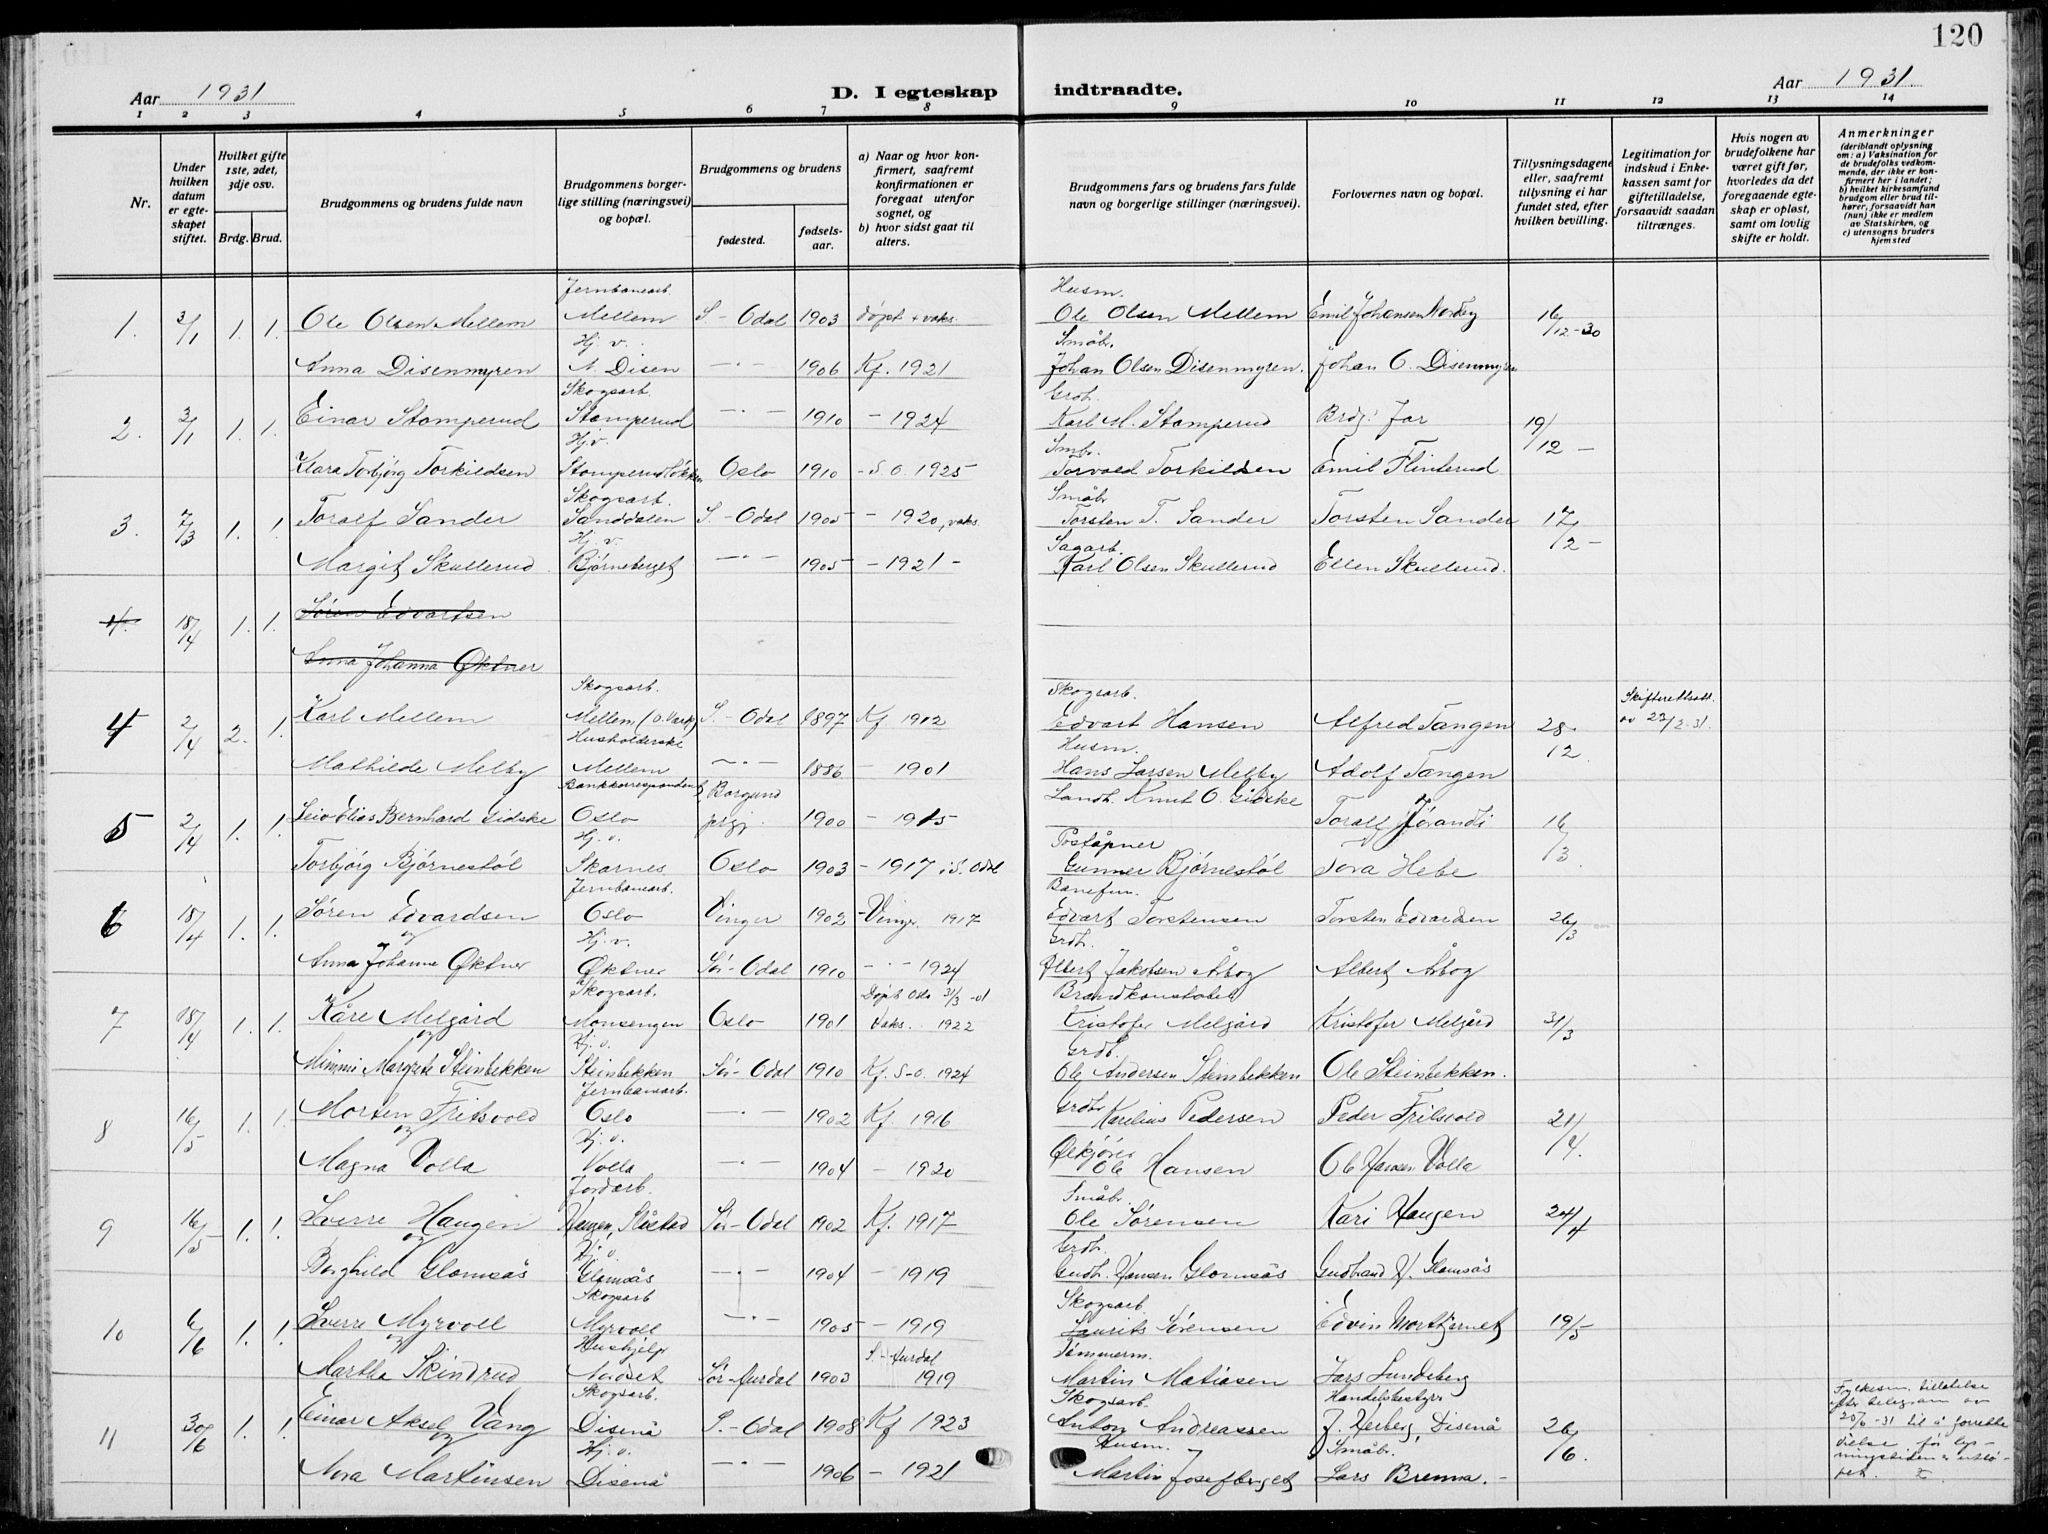 120
Aar 1931
D. I egteskap indtraadte.
Aar 1931.
1 2 3 4 5 6 7 8 9 10 11 12 13 14
Nr.
Under hvilken datum er egteskapet stiftet.
Hvilket gifte 1ste, 2det, 3dje osv.
Brdg. Brud.
Brudgommens og brudens fulde navn
Brudgommens borgerlige stilling (næringsvei) og bopæl.
Brudgommens og brudens
fødested. fødselsaar.
a) Naar og hvor konfirmert, saafremt konfirmationen er foregaat utenfor sognet, og
b) hvor sidst gaat til alters.
Brudgommens fars og brudens fars fulde navn og borgerlige stillinger (næringsvei).
Forlovernes navn og bopæl.
Tillysningsdagene eller, saafremt tillysning ei har fundet sted, efter hvilken bevilling.
Legitimation for indskud i Enkekassen samt for giftetilladelse, forsaavidt saadan tiltrænges.
Hvis nogen av brudefolkene har været gift før, hvorledes da det foregaaende egteskap er opløst, samt om lovlig skifte er holdt.
Anmerkninger
(deriblandt oplysning om: a) Vaksination for de brudefolks vedkommende, der ikke er konfirmert her i landet; b) hvilket kirkesamfund brudgom eller brud tilhører, forsaavidt han (hun) ikke er medlem av Statskirken, og c) utensogns bruders hjemsted
Jernbanearb. Husm.
1. 3/1 1. 1. Ole Olsen Mellem Mellem S-Odal 1903 døpt + vaks. Ole Olsen Mellem Emil Johansen Nordby 16/12-30
Hj. v. Småbr.
Anna Disenmyren N. Disen -"- 1906 Kf. 1921 Johan Olsen Disenmyren. Johan O. Disenmyren
Skogsarb. Grdb.
2. 3/1 1. 1. Einar Stomperud Stomperud -"- 1910 - 1924 Karl M. Stomperud Brdg. Far 19/12 -
Hj.v. Smbr.
Klara Torbjørg Torkildsen Stomperudløkken Oslo 1910 - S.O. 1925 Torvald Torkildsen Emil Flinterud
Skogsarb. Småbr
3. 7/3 1. 1. Toralf Sander Sanddalen S.-Odal 1905 - 1920, vaks. Torsten T. Sander Torsten Sander 17/2 -
Hj. v. Sagarb.
Margit Skullerud Bjørneberget -"- 1905 - 1921 - Karl Olsen Skullerud Ellen Skullerud.
4. 18/4 1. 1. Søren Edvartsen
Anna Johanna Øktner
Skogsarb. Skogsarb.
4 2/4 2. 1. Karl Mellem Mellem (o. Vark) S-Odal 1897 Kf 1912 Edvart Hansen Alfred Tangen 28/12 Skifterettsatt. av 23/2-31.
Husholderske Husm.
Mathilde Melby Mellem -"- 1886 - 1901 Hans Larsen Melby Adolf Tangen
Bankkorrespondent
5 2/4 1. 1. Leiv Elias Bernhard Gidske Oslo Borgund prgj. 1900 - 1915 Landh. Knut O. Gidske Toralf Jørandli 16/3
Hj. v. Poståpner
Torbjørg Bjørnestøl Skarnes Oslo 1903 - 1917 i S. Odal Gunner Bjørnestøl Tora Hebe
Jernbanearb. Banefm.
6 18/4 1. 1. Søren Edvardsen Oslo Vinger 1902 - Vinger 1917 Edvart Torstensen Torsten Edvardsen 26/3
og Hj. v. Grdb.
Anna Johanne Øktner Øktner Sør-Odal 1910 - " - 1924 Albert Jakobsen Årbog Albert Årbog
Skogsarb. Døpt Oslo 31/3-01 Brandkonstabel
7 18/4 1. 1. Kåre Melgård Monsengen Oslo 1901 Vaks. 1922 Kristofer Melgård Kristofer Melgård 31/3
og Hj. v. Grdb.
Mimmi Margrete Steinbekken Steinbekken Sør-Odal 1910 Kf. S-O. 1924 Ole Andersen Steinbekken Ole Steinbekken.
Jernbanearb. Grdbr
8 16/5 1. 1. Morten Fritsvold Oslo -"- 1902 Kf. 1916 Karelius Pedersen Peder Fritsvold 21/4.
og Hj. v. Ølkjører
Magna Volla Volla -"- 1904 - 1920 Ole Hansen Ole Hansen Volla
Jordarb. Småbr.
9 16/5 1. 1. Sverre Haugen Haugen, Slåstad Sør-Odal 1902 Kf. 1917 Ole Sørensen Kari Haugen 24/4
og Hj. v. Grdbr.
Borghild Glomsås Glomsås -"- 1904 - 1919 Gudbr. Hansen Glomsås Gudbrand H. Glomsås
Skogsarb Skogsarb.
10 6/6 1. 1. Sverre Myrvoll Myrvoll -"- 1905 - 1919 Laurits Sørensen Edvin Mortkjernet 19/5
og Hushjelp S-Aurdal Tømmerm.
Martha Skindrud Sør-Aurdal 1903 1919 Martin Matiasen Lars Lundeberg
Skogsarb. Skogsarb. Handelsbestyrer
11 30/6 1. 1. Einar Aksel Vang Disenå S.-Odal 1908 Kf 1923 Anton Andreassen J. Herberg, Disenå 26/6.
og Hj. v. Husm. Småbr.
Nora Martinsen Disenå -"- 1906 - 1921 Martin Josefberget Lars Brenna. -
Fylkesm. tillatelse efter telegram av 20/6-31 til å forrette vielse før lysningstiden er utløpet.